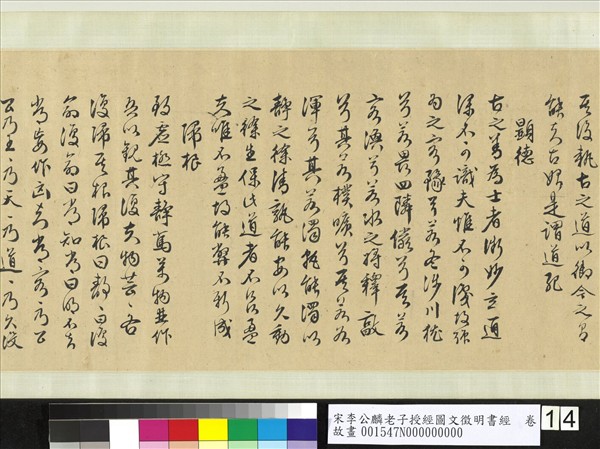 其後執古之道以御今之有
能知古始是謂道紀
顯德
古之善為士者微妙玄通
深不可識夫惟不可識故強
為之容豫兮若冬涉川猶
兮若畏四隣儼兮其若
客渙兮若冰之將釋敦
兮其若樸曠兮其若谷
渾兮其若濁孰能濁以
靜之徐清孰能安以久動
之徐生保此道者不欲盈
夫惟不盈故能敝不新成
歸根
致虛極守靜篤萬物並作
吾以觀其復夫物芸〻各
復歸其根歸根曰靜〻曰復
命復命曰常知常曰明不知
常妄作凶知常容〻乃公
公乃王〻乃天〻乃道〻乃久沒
宋李公麟老子授經圖文徵明書經 卷 14
故畫 001547N000000000